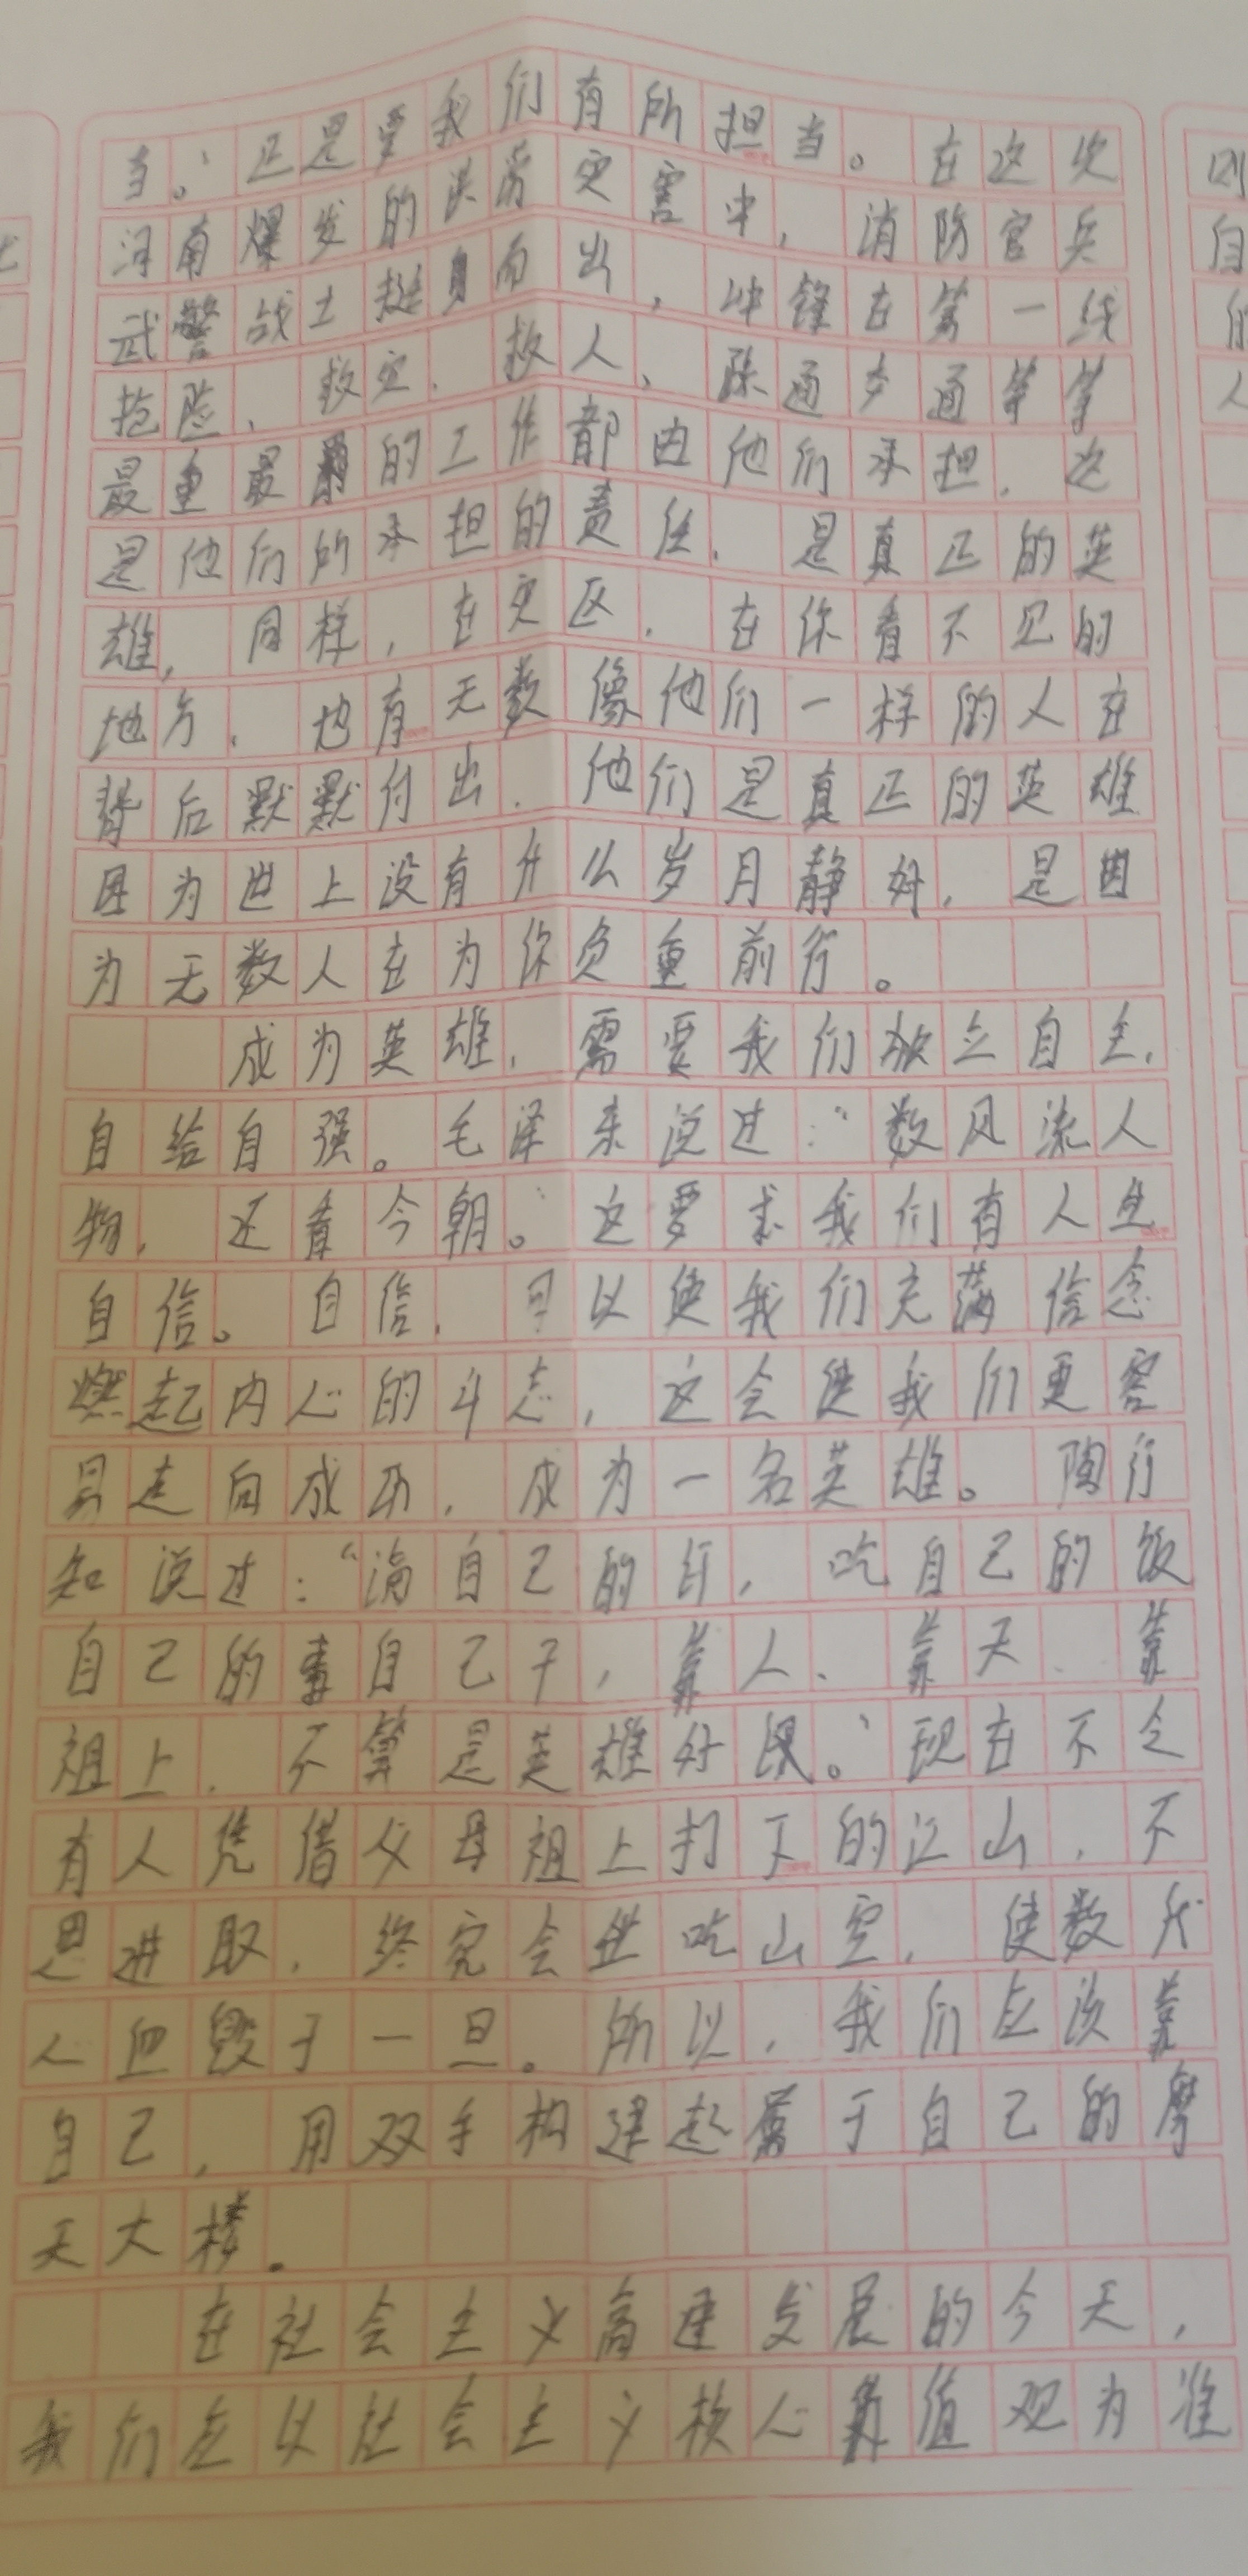 当。”正是要我们有所担当。在这次
河南爆发的洪涝灾害中，消防官兵
武警战士挺身而出，冲锋在第一线
抢险、救灾、救人、疏通交通等等
最重最累的工作都由他们承担，这
是他们所承担的责任，是真正的英
雄，同样，在灾区，在你看不见的
地方，也有无数像他们一样的人在
背后默默付出，他们是真正的英雄
因为世上没有什么岁月静好，是因
为无数人在为你负重前行。
成为英雄，需要我们独立自主，
自给自强。毛泽东说过：“数风流人
物，还看今朝。”这要求我们有人生
自信。自信，可以使我们充满信念
燃起内心的斗志，这会使我们更容
易走向成功，成为一名英雄。陶行
知说过：“滴自己的汗，吃自己的饭
自己的事自己干，靠人、靠天、靠
祖上，不算是英雄好汉。”现在不乏
有人凭借父母祖上打下的江山，不
思进取，终究会坐吃山空，使数代
人血毁于一旦。所以，我们应该靠
自己，用双手构建起属于自己的摩
天大楼。
在社会主义高速发展的今天，
我们应以社会主义核心价值观为准
四
自
人